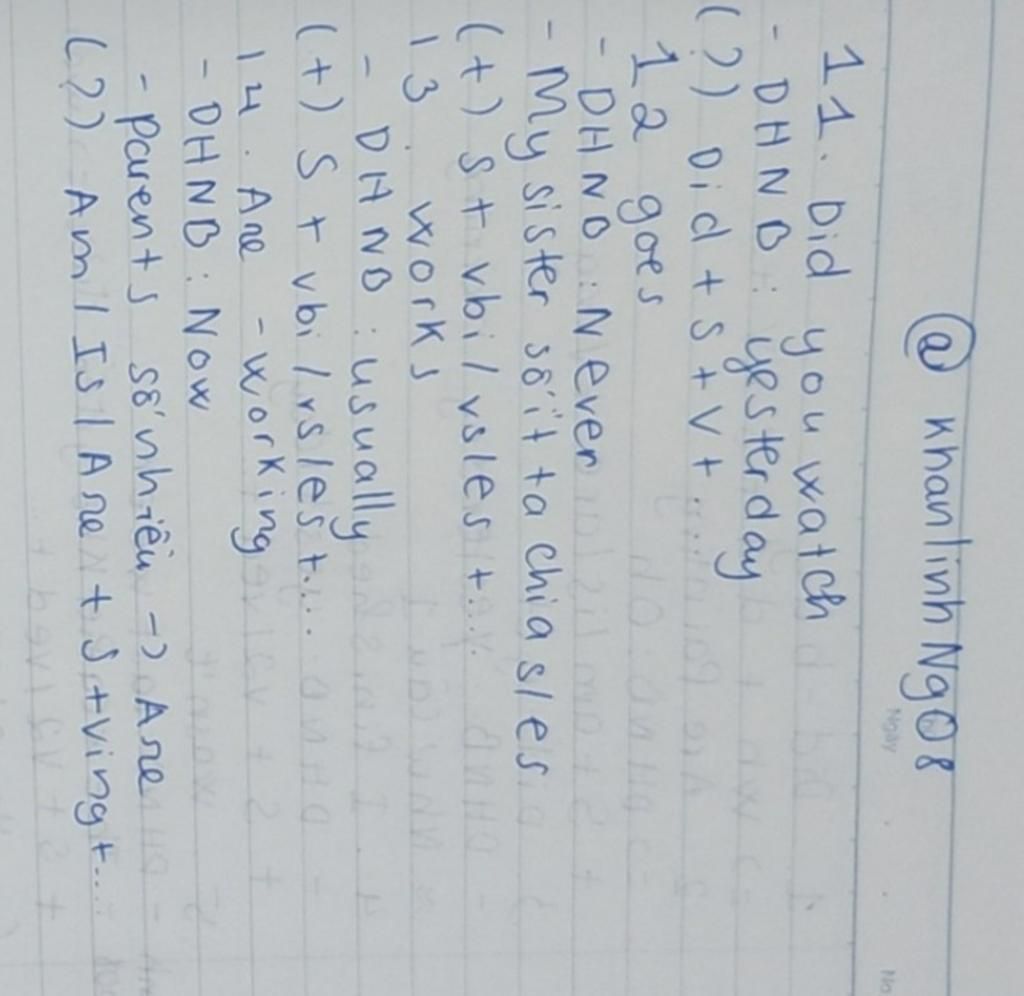 @ KhanlinhNg08
Ngày
No
11. Did you watch
- DHNB: yesterday
(?) Did + S + V + ...
12 goes
- DHNB: Never
- My sister số ít ta chia s/es
(+) S + vbi/vs/es + ...
13. works
- DHNB: usually
(+) S + vbi/vs/es + ...
14. Are - working
- DHNB: Now
- parents số nhiều -> Are
(?) Am/Is/Are + S + ving + ...